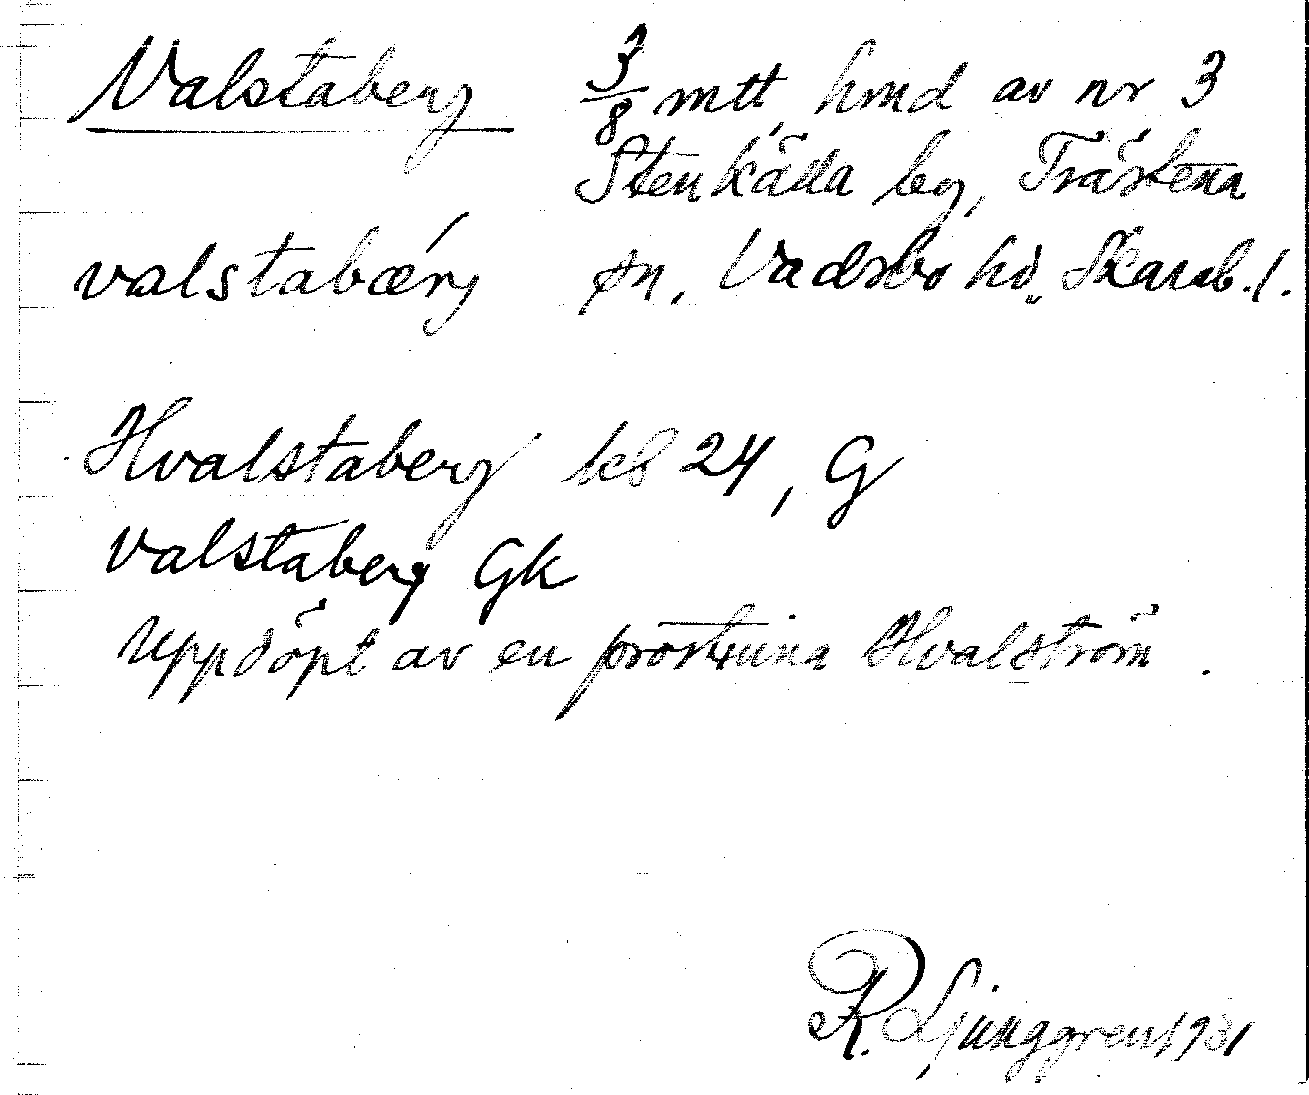 Valstaberg 3/8 mtt, hmd av nr 3
Stenkälla by, Trästena
valstabærj sn. Vadsbo hd. Skarab. l.
Hvalstaberg kb 24, G
Valstaberg Gk
Uppdöpt av en prostinna Hvalström.
R. Ljunggren 1931